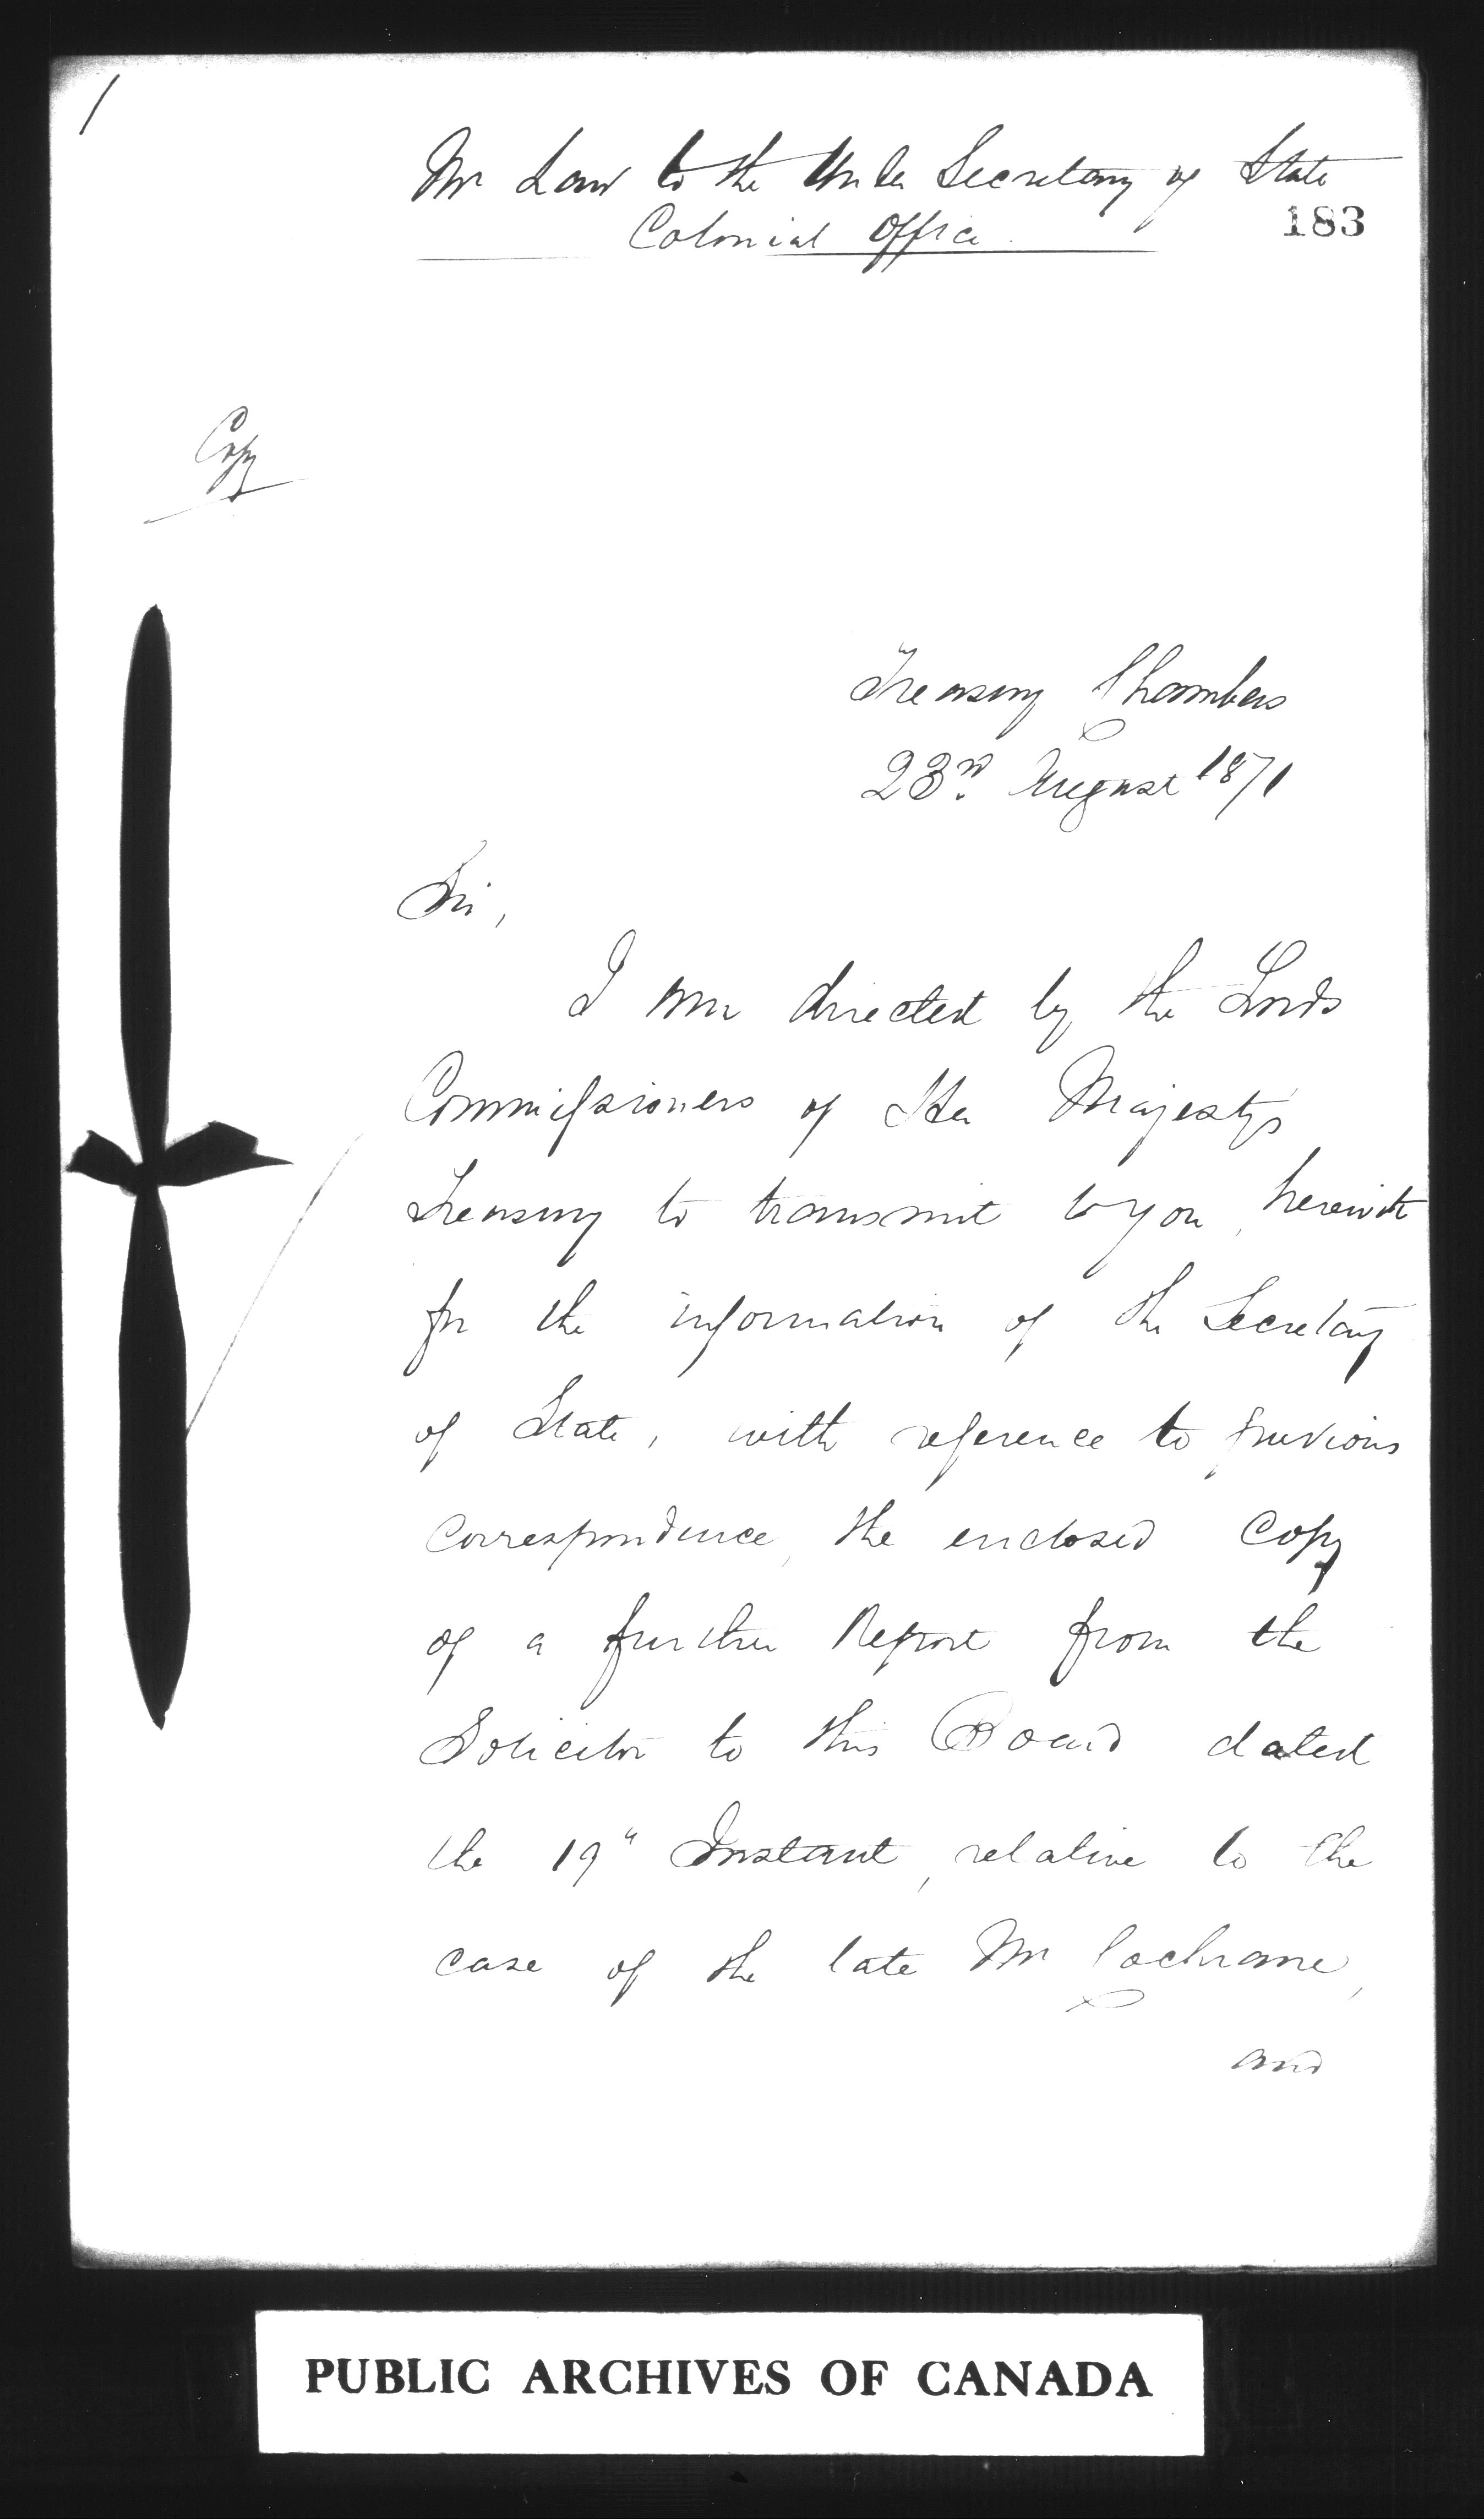 Mr Law to the Under Secretary of State
Colonial Office
183
Copy
Treasury Chambers
23rd August 1871
Sir,
I am directed by the Lords
Commissioners of Her Majesty's
Treasury to transmit to you, herewith
for the information of the Secretary
of State, with reference to previous
correspondence, the enclosed copy
of a further Report from the
Solicitor to this Board dated
the 19" Instant, relative to the
case of the late Mr Cochrane,
and
PUBLIC ARCHIVES OF CANADA